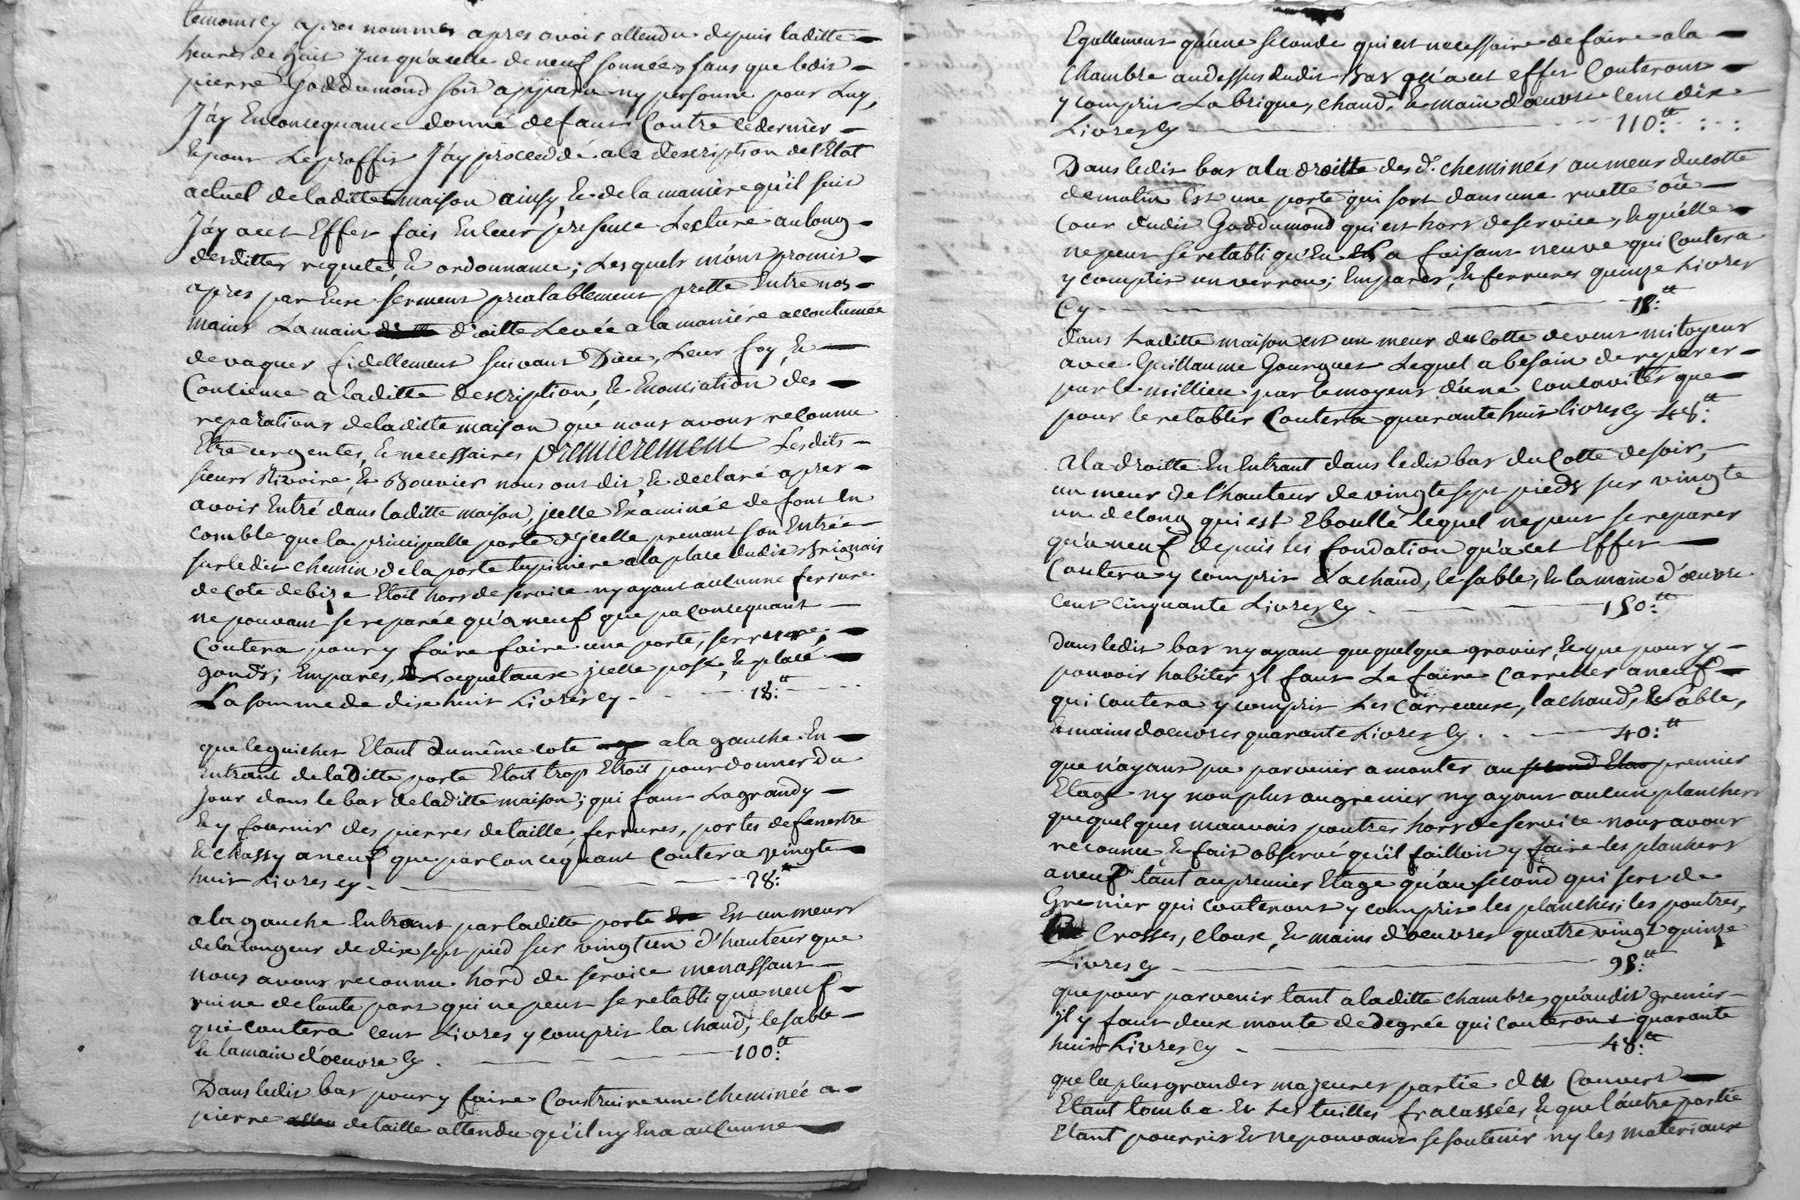 temoins cy apres nommes apres avoir attendu depuis laditte
heures de huit jusqu'a celle de neuf sonnées sans que ledit
pierre Goddumond soit apparu ny personne pour luy,
J'ay En consequance donné defaut Contre ce dernier
Et pour Le proffit J'ay procedé a la description de l'Etat
actuel de laditte maison ainsy, & de la maniere qu'il suit
J'ay a cet Effet fait En leur presence Lecture au long
desdittes requete, & ordonnance; Lesquels m'ont promis
apres par Eux serment prealablement prette Entre nos
mains La main droitte Levée a la maniére accoutumée
de vaquer fidellement suivant Dieu, Leur foy, &
Contience a laditte description, & Enonciation des
reparations de laditte maison que nous avons reconnu
Etre urgentes, & necessaires premierement Lesdits
sieurs Rivoire, & Bouvier nous ont dit, & declaré apres
avoir Entré dans laditte maison, jcelle Examinée de font En
comble que la principalle porte d'jcelle prenant son Entrée
sur le dit chemin de la porte tupiniere a la place dudit Brignais
de cote de bize Etoit hors de service ny ayant aucunne ferrure
ne pouvant se reparée qu'a neuf que pa consequant
Contera pour y faire faire une porte, serrure,
gonds; Empares, & Locquetaux jcelle posé, & placé
La somme de dix huit Livres cy 18:tt
que le guichet Etant du même cote a la gauche En
Entrant de laditte porte Etoit trop Etroit pour donner du
Jour dans le bas de laditte maison; qui faut Lagrandy
& y fournir des pierres de taille, ferrures, portes de fenestre
& chassy a neuf que par consequant Contera vingte
huit Livres cy 28:tt
a la gauche Entrant par laditte porte Est un meurs
de la longeur de dix sept pied sur vingt un d'hauteur que
nous avons reconnu hord de service menassant
ruine de toute part qui ne peut se retabli qua neuf
qui contera cent Livres y compris la chaud, le sable
& la main d'oeuvre cy 100:tt
Dans ledit bas pour y faire Construire une cheminée a
pierre de taille attendu qu'il ny En a aucunne
Egallement qu'une seconde qui est necessaire de faire a la
chambre audessus dudit bas qu'a cet effet Conteront
y compris La brique, chaud, & main d'oeuvre Cent dix
Livres cy 110:tt
Dans ledit bas a la droitte des d. cheminées au meur du cotte
de matin Est une porte qui sort dans une ruette ou
cour dudit Goddumond qui est hors de service, lequelle
ne peut se retabli qu'En La faisant neuve qui Contera
y compris un verrou; Empares, & ferrures quinze Livres
Cy 15:tt
dans Laditte maison est un meur du cotte de vent mitoyen
avec Guillaume Gourguet Lequel a besoin de reparer
par le millieu par le moyent d'une concavitté que
pour le retablir Contera quarante huit livres cy 48:tt
A la droitte En Entrant dans ledit bas du Cotte de soir,
un meur de l'hauteur de vingte sept pieds sur vingte
un de long qui est Eboullé lequel ne peut se reparer
qu'a neuf depuis les fondation qu'a cet Effet
Contera y compris la chaud, le sable, & la main d'oeuvre
Cent cinquante Livres cy 150:tt
Dans ledit bas ny ayant que quelque gravier, & que pour y
pouvoir habiter jl faut Le faire Carreller a neuf
qui contera y compris Les Carreaux, la chaud, & sable,
& mains d'oeuvres quarante Livres cy 40:tt
que n'ayant pu parvenir a monter au second Etage premier
Etage ny non plus au grenier ny ayant aucun planchers
que quelques mauvais poutres hors de service nous avons
reconnu, & fait observé qu'il failloit y faire les planchers
a neuf tant au premier Etage qu'au second qui sert de
Grenier qui conteront y compris les planches, les poutres,
Crosses, cloux, & mains d'oeuvres quatre vingt quinze
Livres cy 95:tt
que pour parvenir tant a laditte chambre, qu'audit grenier
jl y faut deux monte de degrée qui conteront quarante
huit Livres cy 48:tt
que la plus grandes majeures partie du Couvert
Etant tombé & Les tuilles fracassées, & que l'autre partie
Etant pourrit & ne pouvant se soutenir ny les materiaux